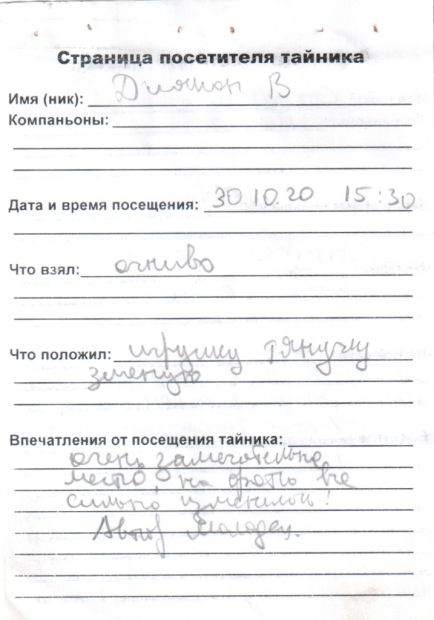 Страница посетителя тайника
Имя (ник): Димон В
Компаньоны:
Дата и время посещения: 30.10.20 15:30
Что взял: огниво
Что положил: игрушку тянучку
змеиную
Впечатления от посещения тайника:
очень замечательно
место, на фото все
сильно изменилось!
Автор молодец.